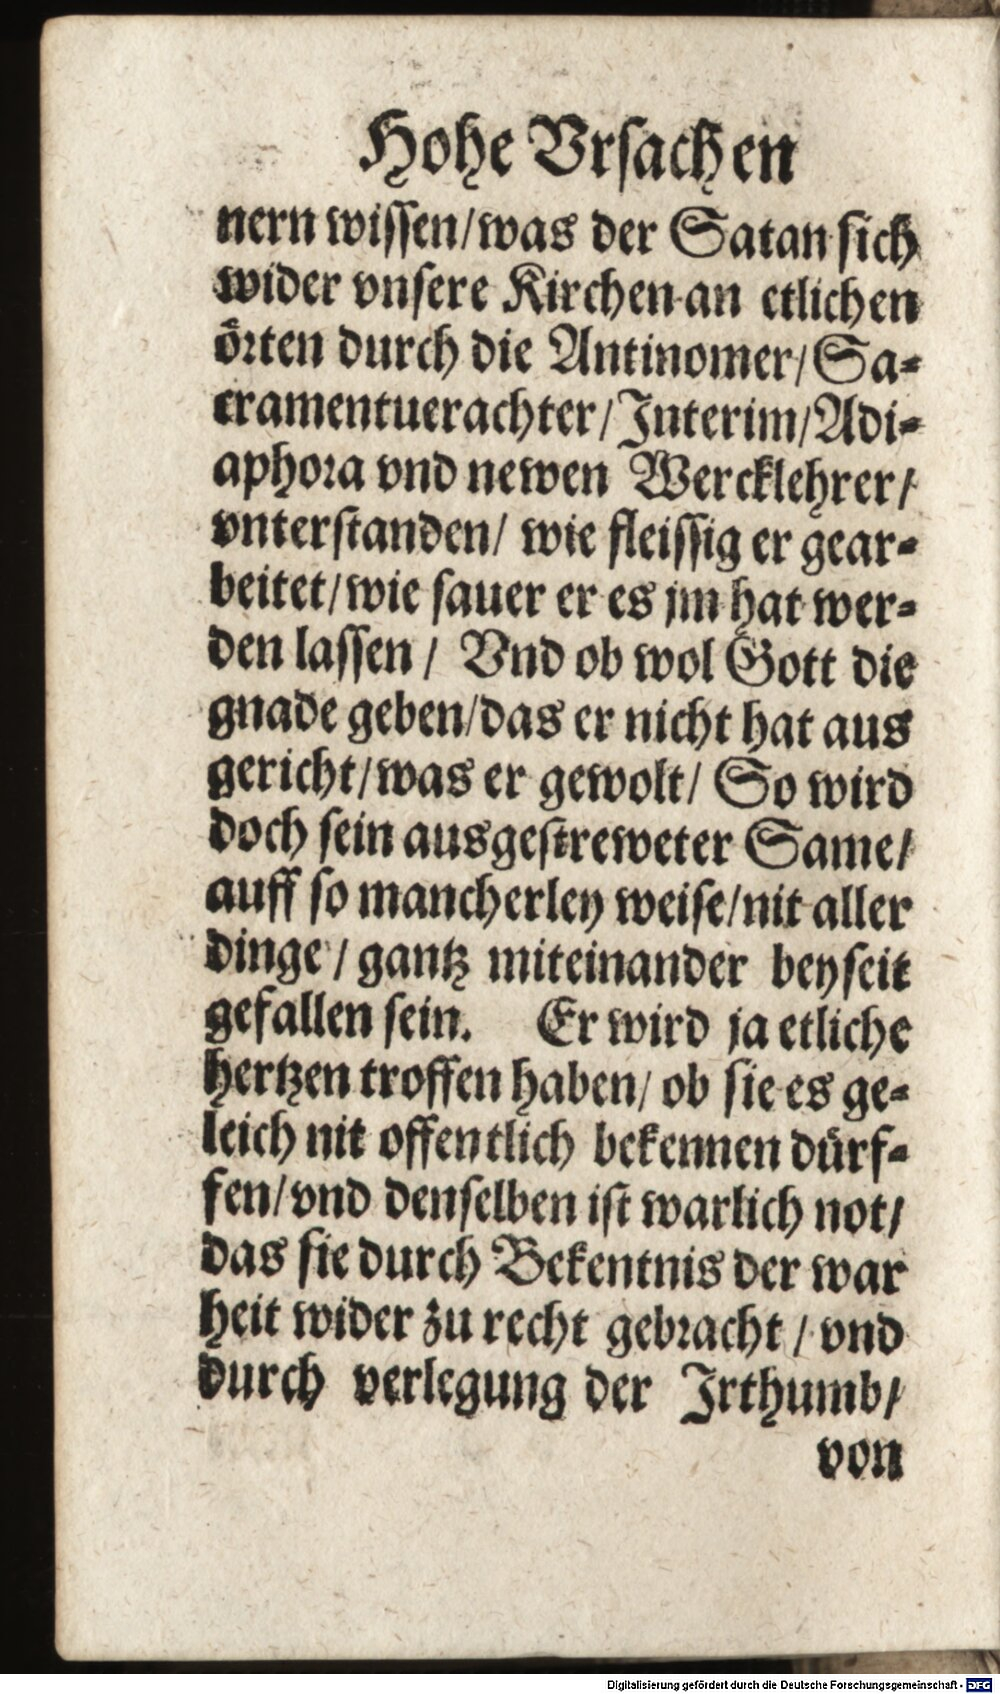 Hohe Vrsachen
nern wissen/was der Satan sich
wider vnsere Kirchen an etlichen
oͤrten durch die Antinomer/Sa⸗
cramentuerachter/Interim/Adi⸗
aphora vnd newen Wercklehrer/
vnterstanden/ wie fleissig er gear⸗
beitet/wie sauer er es jm hat wer⸗
den lassen / Vnd ob wol Gott die
gnade geben/das er nicht hat aus
gericht/was er gewolt/ So wird
doch sein ausgestreweter Same/
auff so mancherley weise/nit aller
dinge / gantz miteinander beyseit
gefallen sein. Er wird ja etliche
hertzen troffen haben/ ob sie es ge⸗
leich nit offentlich bekennen dürf⸗
fen/vnd denselben ist warlich not/
das sie durch Bekentnis der war
heit wider zu recht gebracht / vnd
durch verlegung der Irthumb/
von
Digitalisierung gefördert durch die Deutsche Forschungsgemeinschaft - DFG